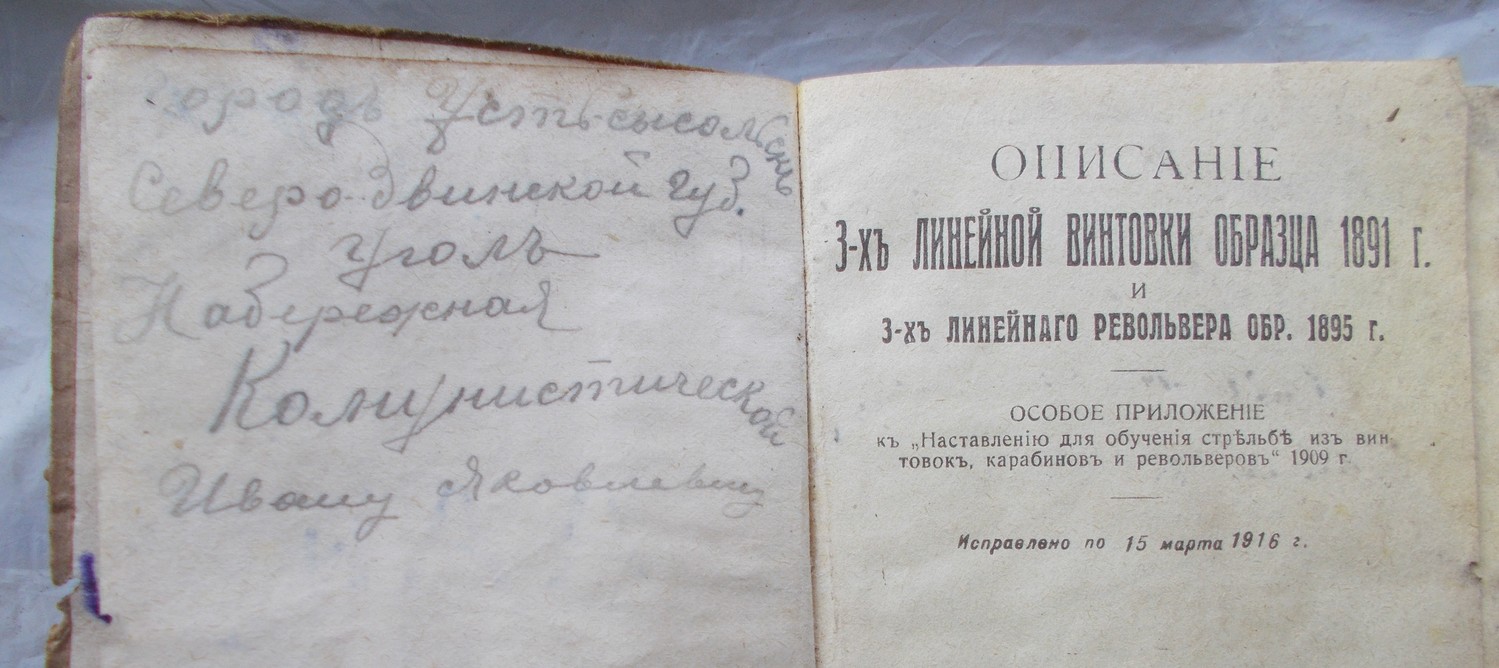 городъ Усть-сысольскъ
Северо-Двинской губ.
уголъ
Набережная
Комунистической
Ивану Яковлевичу
ОПИСАНІЕ
3-хъ ЛИНЕЙНОЙ ВИНТОВКИ ОБРАЗЦА 1891 г.
и
3-хъ ЛИНЕЙНАГО РЕВОЛЬВЕРА ОБР. 1895 г.
ОСОБОЕ ПРИЛОЖЕНІЕ
къ „Наставленію для обученія стрѣльбѣ изъ вин-
товокъ, карабиновъ и револьверовъ“ 1909 г.
Исправлено по 15 марта 1916 г.